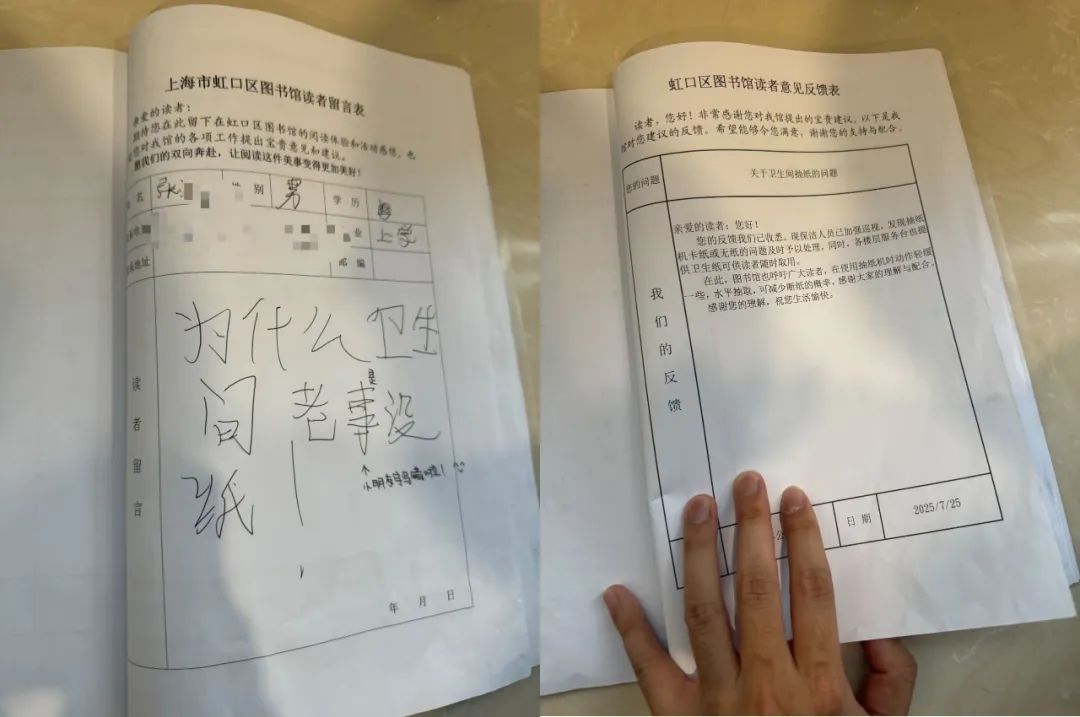 上海市虹口区图书馆读者留言表
亲爱的读者:
期待您在此留下在虹口区图书馆的阅读体验和活动感悟,也
您对我馆的各项工作提出宝贵意见和建议。
我们的双向奔赴,让阅读这件美事变得更加美好!
名 张 性别 男 学历
业 上学
地址 邮编
读者留言
为什么卫生
间老事没
是
纸!
↑
小朋友写错啦!
年 月 日
虹口区图书馆读者意见反馈表
读者,您好!非常感谢您对我馆提出的宝贵建议。以下是我
馆对您建议的反馈。希望能够令您满意,谢谢您的支持与配合。
您的问题 关于卫生间抽纸的问题
我们的反馈
亲爱的读者:您好!
您的反馈我们已收悉。现保洁人员已加强巡视,发现抽纸
机卡纸或无纸的问题及时予以处理。同时,各楼层服务台也提
供卫生纸可供读者随时取用。
在此,图书馆也呼吁广大读者,在使用抽纸机时动作轻缓
一些,水平抽取,可减少断纸的概率。感谢大家的理解与配合。
感谢您的理解,祝您生活愉快。
日期 2025/7/25